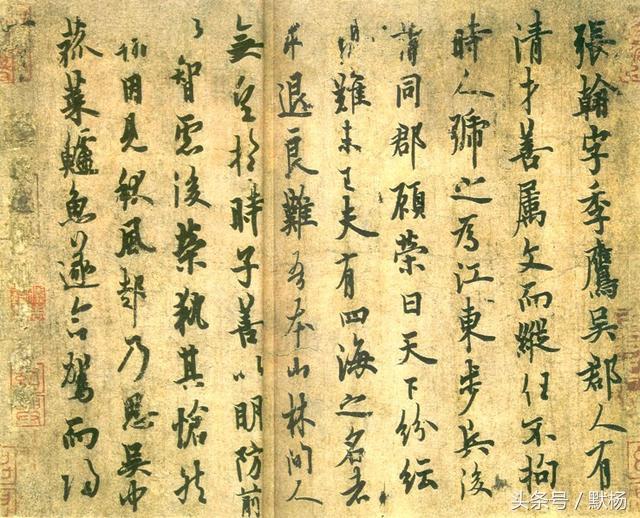 張翰字季鷹吳郡人有
清才善屬文而縱任不拘
時人號之為江東步兵後
謂同郡顧榮曰天下紛紜
禍難未已夫有四海之名者
求退良難吾本山林間人
無望於時子善以明防前
以智慮後榮執其愴然
翰因見秋風起乃思吳中
菰菜鱸魚遂命駕而歸
头条号 / 默杨